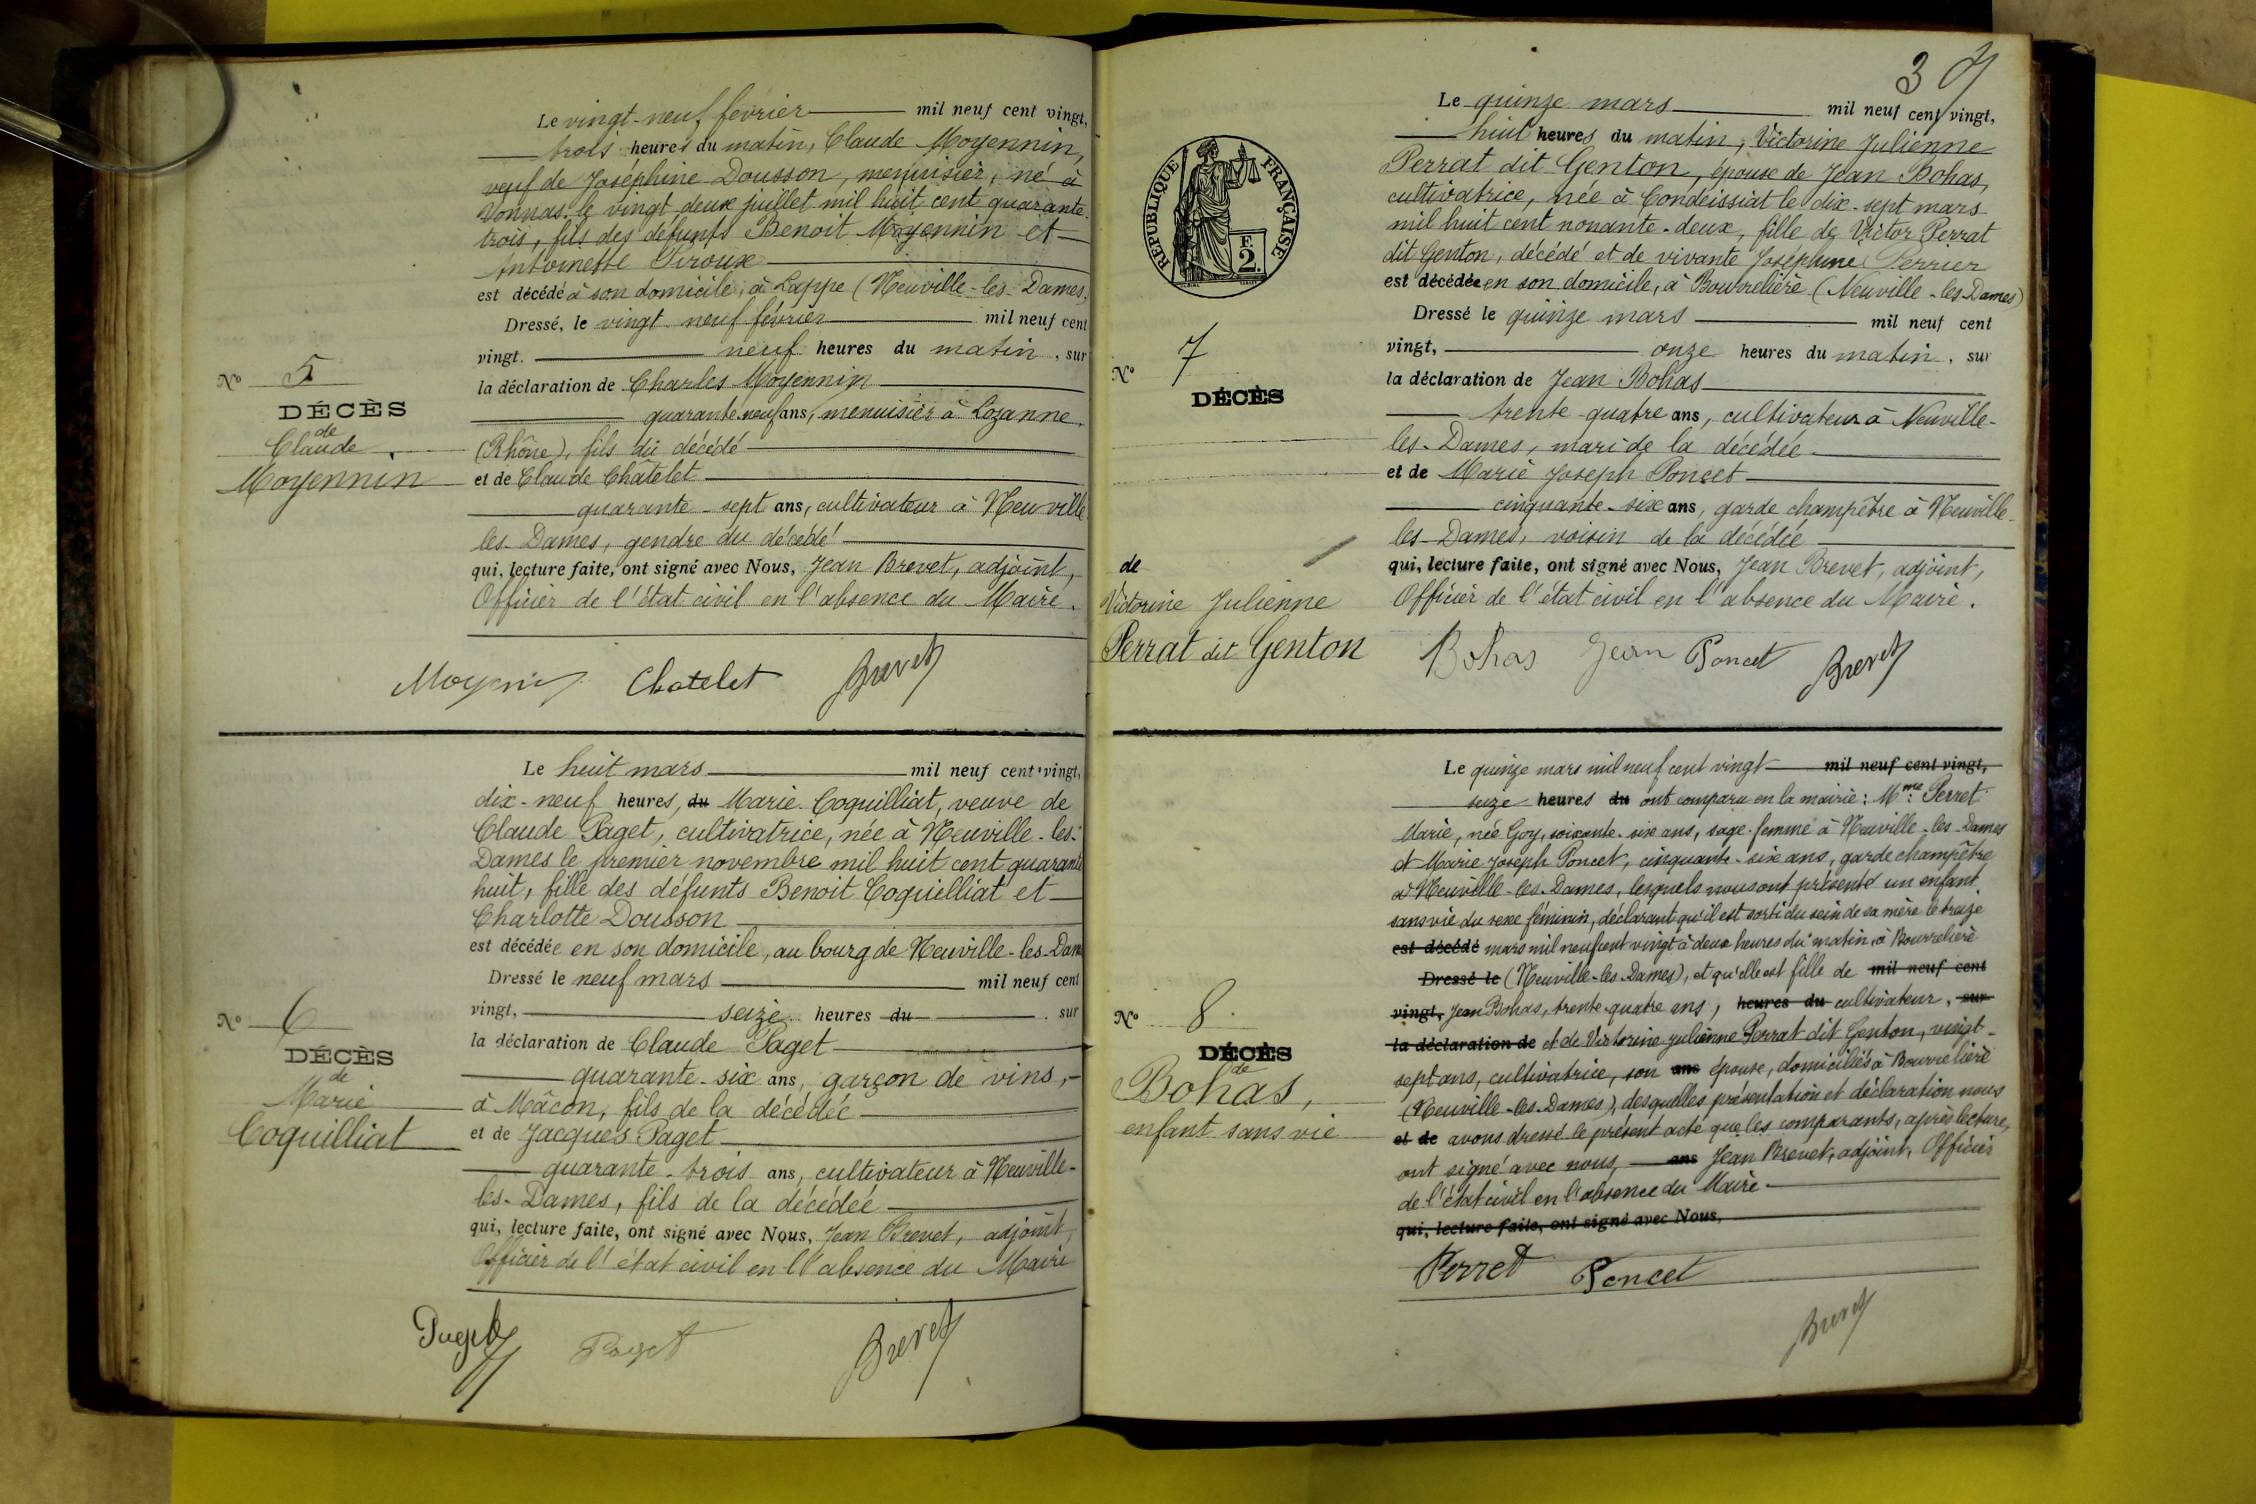 Le vingt-neuf février mil neuf cent vingt,
trois heures du matin, Claude Moyennin,
veuf de Joséphine Dousson, menuisier, né à
Vonnas le vingt deux juillet mil huit cent quarante
trois, fils des défunts Benoit Moyennin et
Antoinette Giroux
est décédé à son domicile, à Lappe (Neuville-les-Dames)
Dressé, le vingt neuf février mil neuf cent
vingt. neuf heures du matin, sur
la déclaration de Charles Moyennin
quarante neuf ans, menuisier à Lozanne
(Rhône), fils du décédé
et de Claude Châtelet
quarante-sept ans, cultivateur à Neuville
les-Dames, gendre du décédé
qui, lecture faite, ont signé avec Nous, Jean Brevet, adjoint,
Officier de l'état civil en l'absence du Maire.
N° 5
DÉCÈS
de
Claude
Moyennin
Chatelet Brevet
Le huit mars mil neuf cent vingt,
dix-neuf heures, du Marie Coquilliat, veuve de
Claude Paget, cultivatrice, née à Neuville-les-
Dames le premier novembre mil huit cent quarante
huit, fille des défunts Benoit Coquilliat et
Charlotte Dousson
est décédée en son domicile, au bourg de Neuville-les-Dam
Dressé le neuf mars mil neuf cent
vingt, seize heures du sur
la déclaration de Claude Paget
quarante-six ans, garçon de vins,
à Mâcon, fils de la décédée
et de Jacques Paget
quarante-trois ans, cultivateur à Neuville-
les-Dames, fils de la décédée
qui, lecture faite, ont signé avec Nous, Jean Brevet, adjoint,
Officier de l'état civil en l'absence du Maire
N° 6
DÉCÈS
de
Marie
Coquilliat
Paget Paget Brevet
3
RÉPUBLIQUE FRANÇAISE
2
Le quinze mars mil neuf cent vingt,
huit heures du matin, Victorine Julienne
Perrat dit Genton, épouse de Jean Bohas,
cultivatrice, née à Condeissiat le dix-sept mars
mil huit cent nonante-deux, fille de Victor Perrat
dit Genton, décédé et de vivante Joséphine Perrier
est décédée en son domicile, à Bourrelière (Neuville-les-Dames)
Dressé le quinze mars mil neuf cent
vingt, onze heures du matin, sur
la déclaration de Jean Bohas
trente-quatre ans, cultivateur à Neuville-
les-Dames, mari de la décédée
et de Marie Joseph Poncet
cinquante-six ans, garde champêtre à Neuville-
les-Dames, voisin de la décédée
qui, lecture faite, ont signé avec Nous, Jean Brevet, adjoint,
Officier de l'état civil en l'absence du Maire.
N° 7
DÉCÈS
de
Victorine Julienne
Perrat dit Genton
Bohas Jean Poncet Brevet
Le quinze mars mil neuf cent vingt mil neuf cent vingt,
seize heures du ont comparu en la mairie: Mme Perret
Marie, née Goy, soixante-six ans, sage-femme à Neuville-les-Dames
et Marie Joseph Poncet, cinquante-six ans, garde champêtre
à Neuville-les-Dames, lesquels nous ont présenté un enfant
sans vie du sexe féminin, déclarant qu'il est sorti du sein de sa mère le treize
est décédé mars mil neuf cent vingt à deux heures du matin à Bourrelière
Dressé le (Neuville-les-Dames), et qu'elle est fille de mil neuf cent
vingt, Jean Bohas, trente-quatre ans, heures du cultivateur, sur
la déclaration de et de Victorine Julienne Perrat dit Genton, vingt-
sept ans, cultivatrice, son ans épouse, domiciliés à Bourrelière
(Neuville-les-Dames), desquelles présentation et déclaration nous
et de avons dressé le présent acte que les comparants, après lecture,
ont signé avec nous, ans Jean Brevet, adjoint, Officier
de l'état civil en l'absence du Maire
qui, lecture faite, ont signé avec Nous,
N° 8
DÉCÈS
de
Bohas,
enfant sans vie
Perret Poncet
Brevet